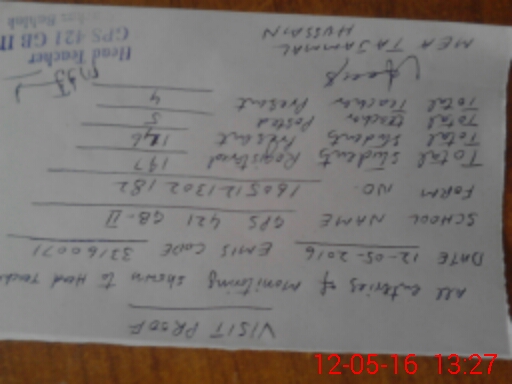 VISIT PROOF
All enteries of monitoring shown to Head
DATE 12-05-2016 EMIS CODE 33160071
SCHOOL NAME GPS 421 GB-II
FORM NO. 1605121302182
Total students Registred 197
Total students Present 146
Total teacher Posted 5
Total Teacher Present 4
MEA TAJAMMAL HUSSAIN
Head Teacher
GPS 421 GB II
12-05-16 13:27